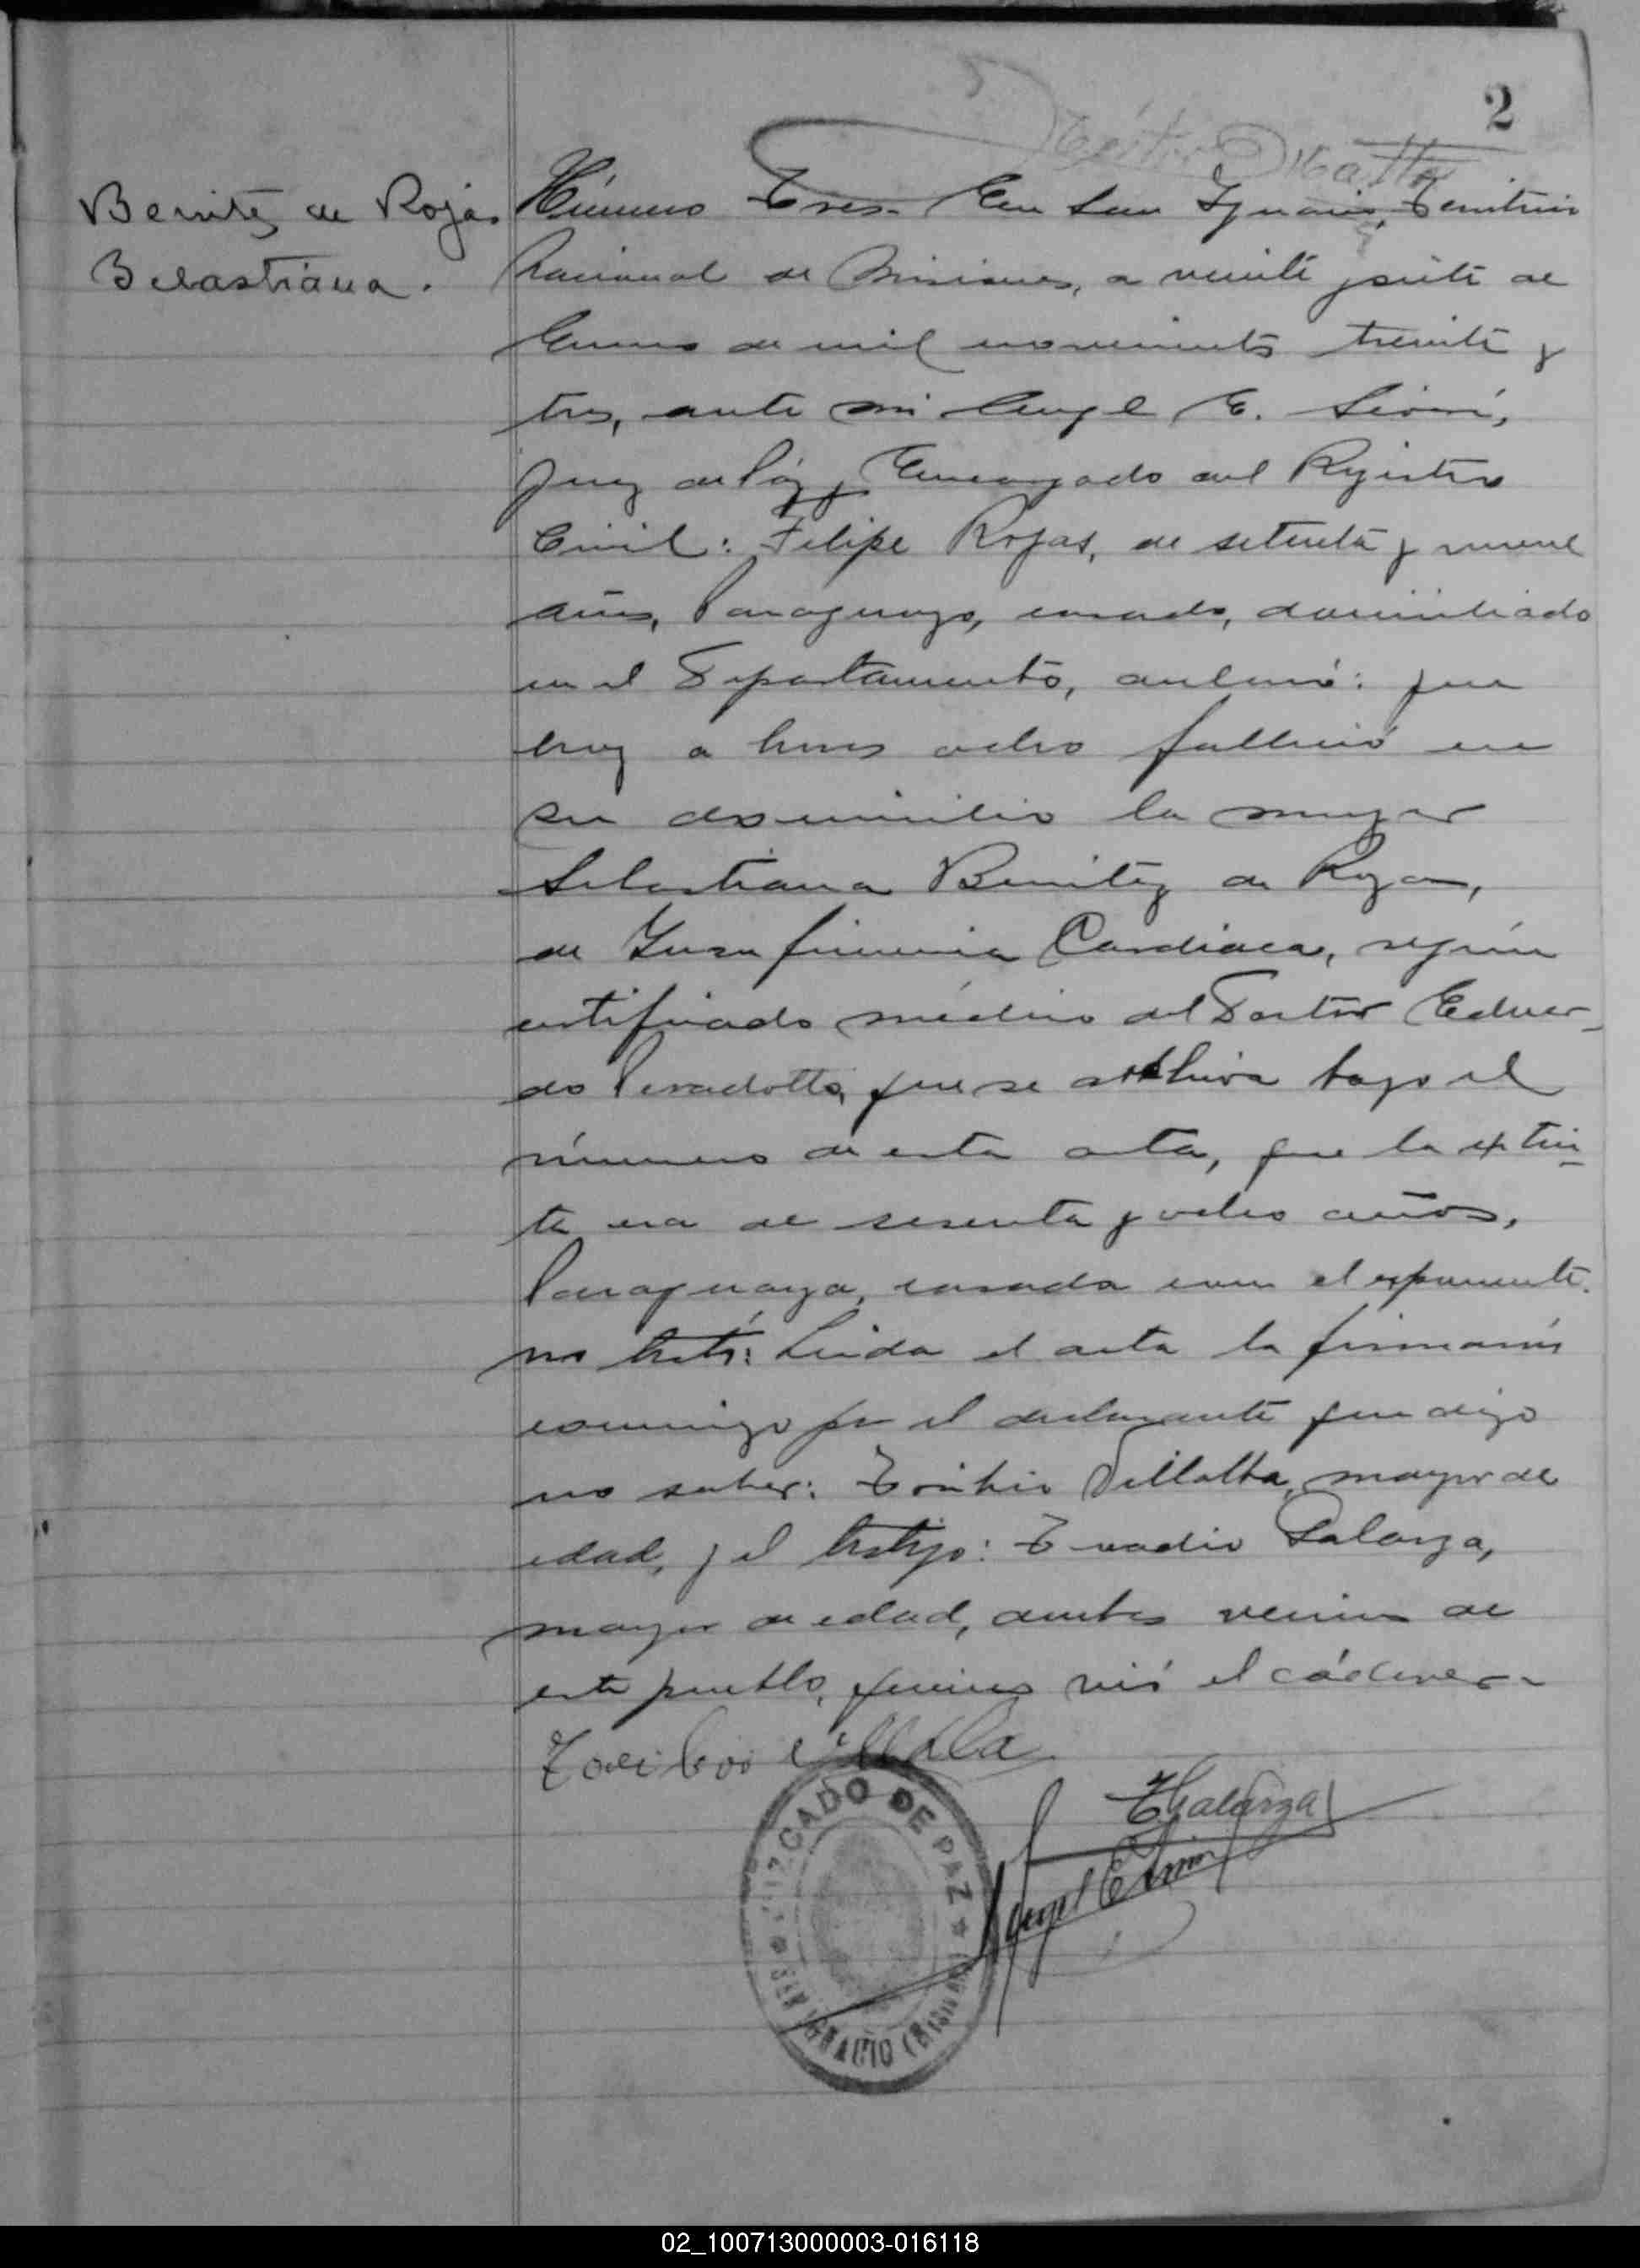 2
Benitez de Rojas
Sebastiana.
Número Tres. En San Ignacio, Territorio
Nacional de Misiones, a veinte y siete de
Enero de mil novecientos treinta y
tres, ante mi Angel E.
Juez de Paz y Encargado del Registro
Civil: Felipe Rojas, de setenta y nueve
años, Paraguayo, casado, domiciliado
en el Departamento, declaró: que
hoy a horas ocho falleció en
su domicilio la mujer
Sebastiana Benitez de Rojas,
de Insuficiencia Cardiaca, según
certificado médico del Doctor Eduar-
do Peradotto, que se archiva bajo el
número de esta acta, que la extin-
ta era de sesenta y ocho años,
Paraguaya, casada con el exponente.
no testó: Leida el acta la firmaron
conmigo por el declarante que dijo
no saber: Toribio Villalba, mayor de
edad, y el testigo: Galarza,
mayor de edad, ambos vecinos de
este pueblo, quienes vió el cádaver.-
Toribio Villalba
Galarza
Angel E
JUZGADO DE PAZ
SAN IGNACIO (MISIONES)
02_100713000003-016118